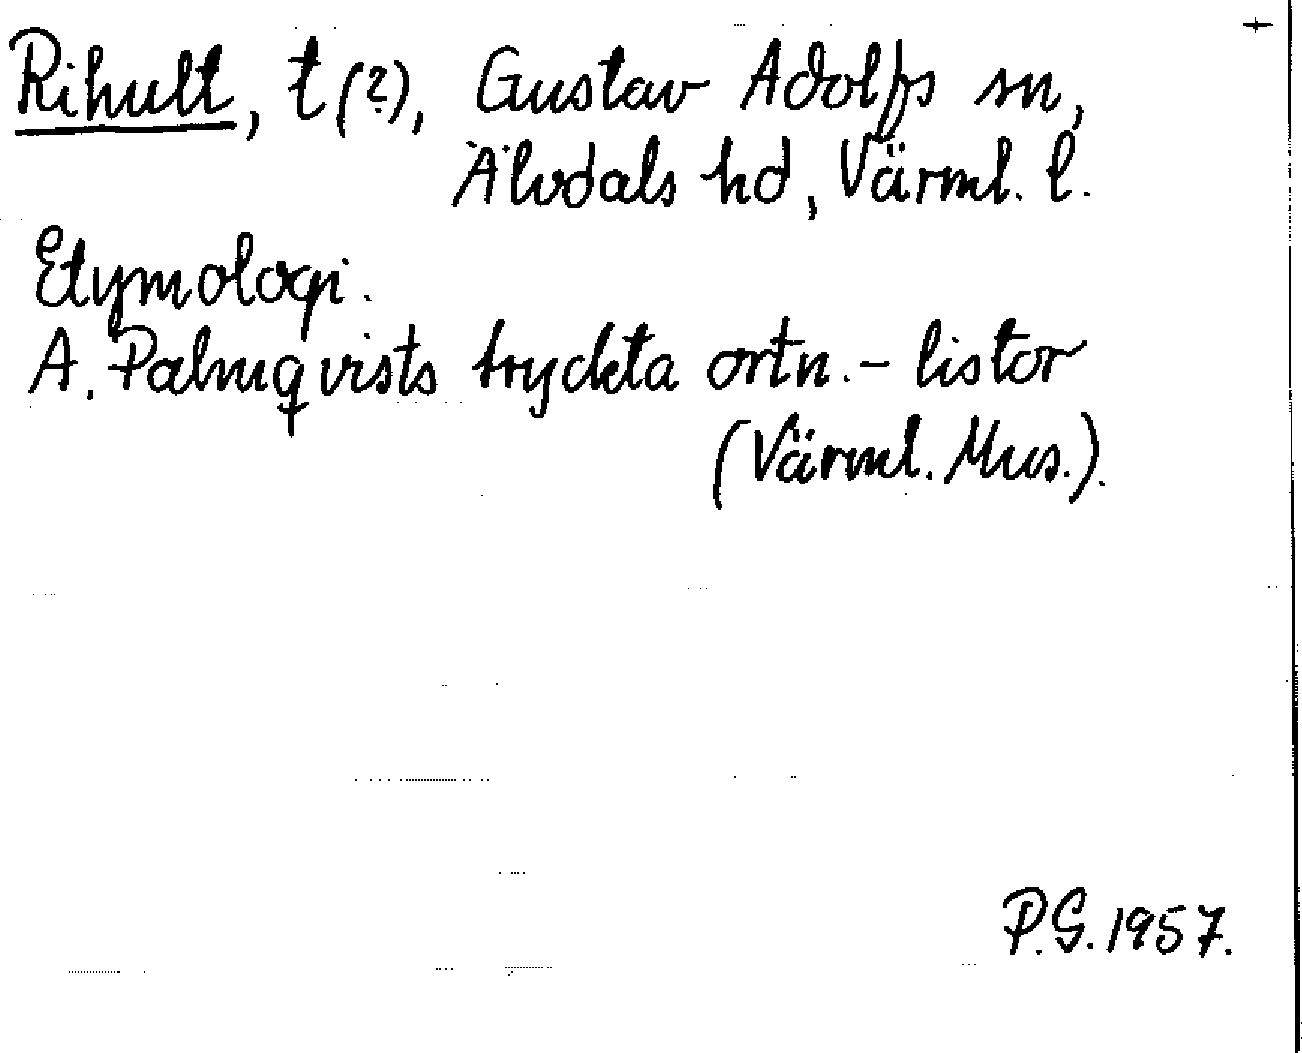 Rihult, t(?), Gustav Adolfs sn,
Älvdals hd, Värml. l.
Etymologi.
A. Palmqvists tryckta ortn.-listor
(Värml. Mus.).
P.G. 1957.